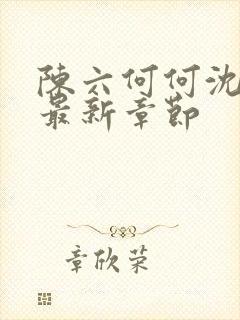 陳六何何沈
最新章節
章欣荣